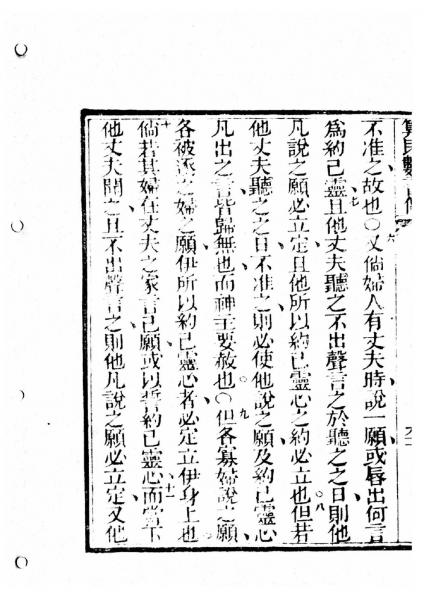 算民數書傳
六
不准之故也○又倘婦人有丈夫時說一願或唇出何言
七
為約己靈且他丈夫聽之不出聲言之於聽之之日則他
八
凡說之願必立定且他所以約己靈心之約必立也但若
他丈夫聽之之日不准之則必使他說之願及約己靈心
九
凡出之言皆歸無也而神主要赦也○但各寡婦說之願
各被逐之婦之願伊所以約己靈心者必定立伊身上也
十
倘若其婦在丈夫之家言己願或以誓約己靈心而當下
十一
他丈夫聞之且不出聲言之則他凡說之願必立定又他